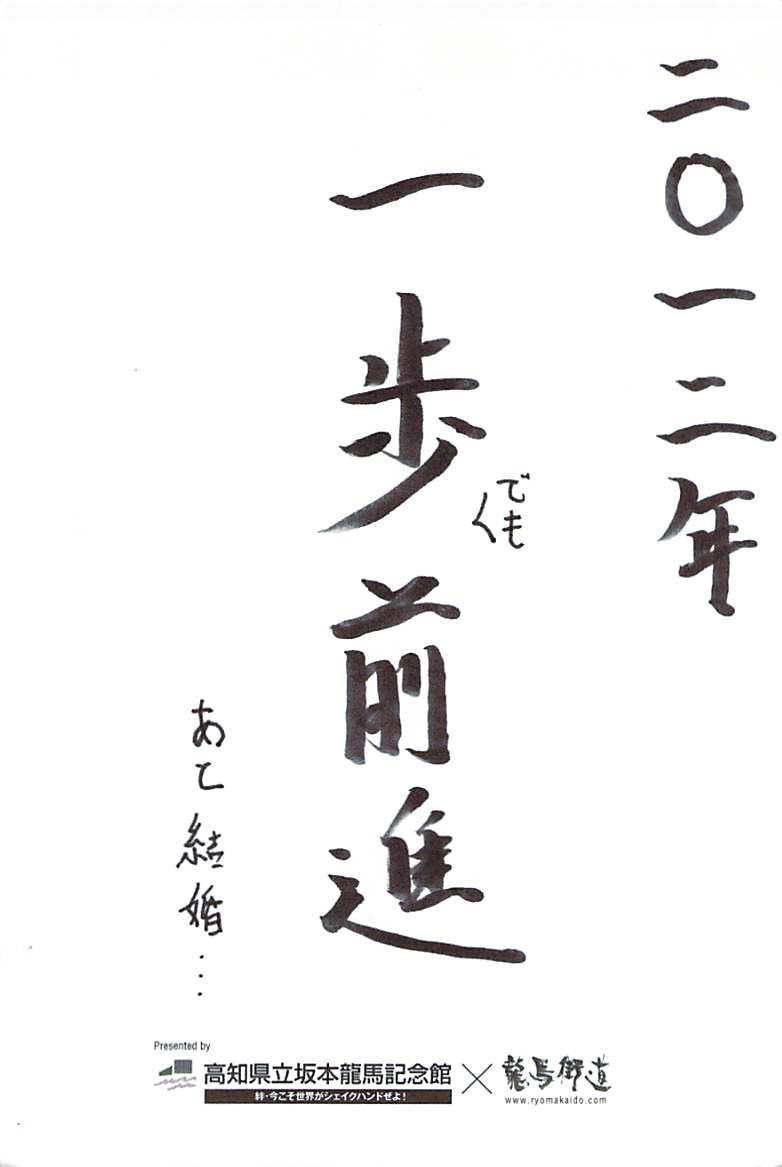 二〇一二年
一歩前進
でも
く
あと結婚…
Presented by
高知県立坂本龍馬記念館 × 龍馬街道
絆・今こそ世界がシェイクハンドぜよ！
www.ryomakaido.com